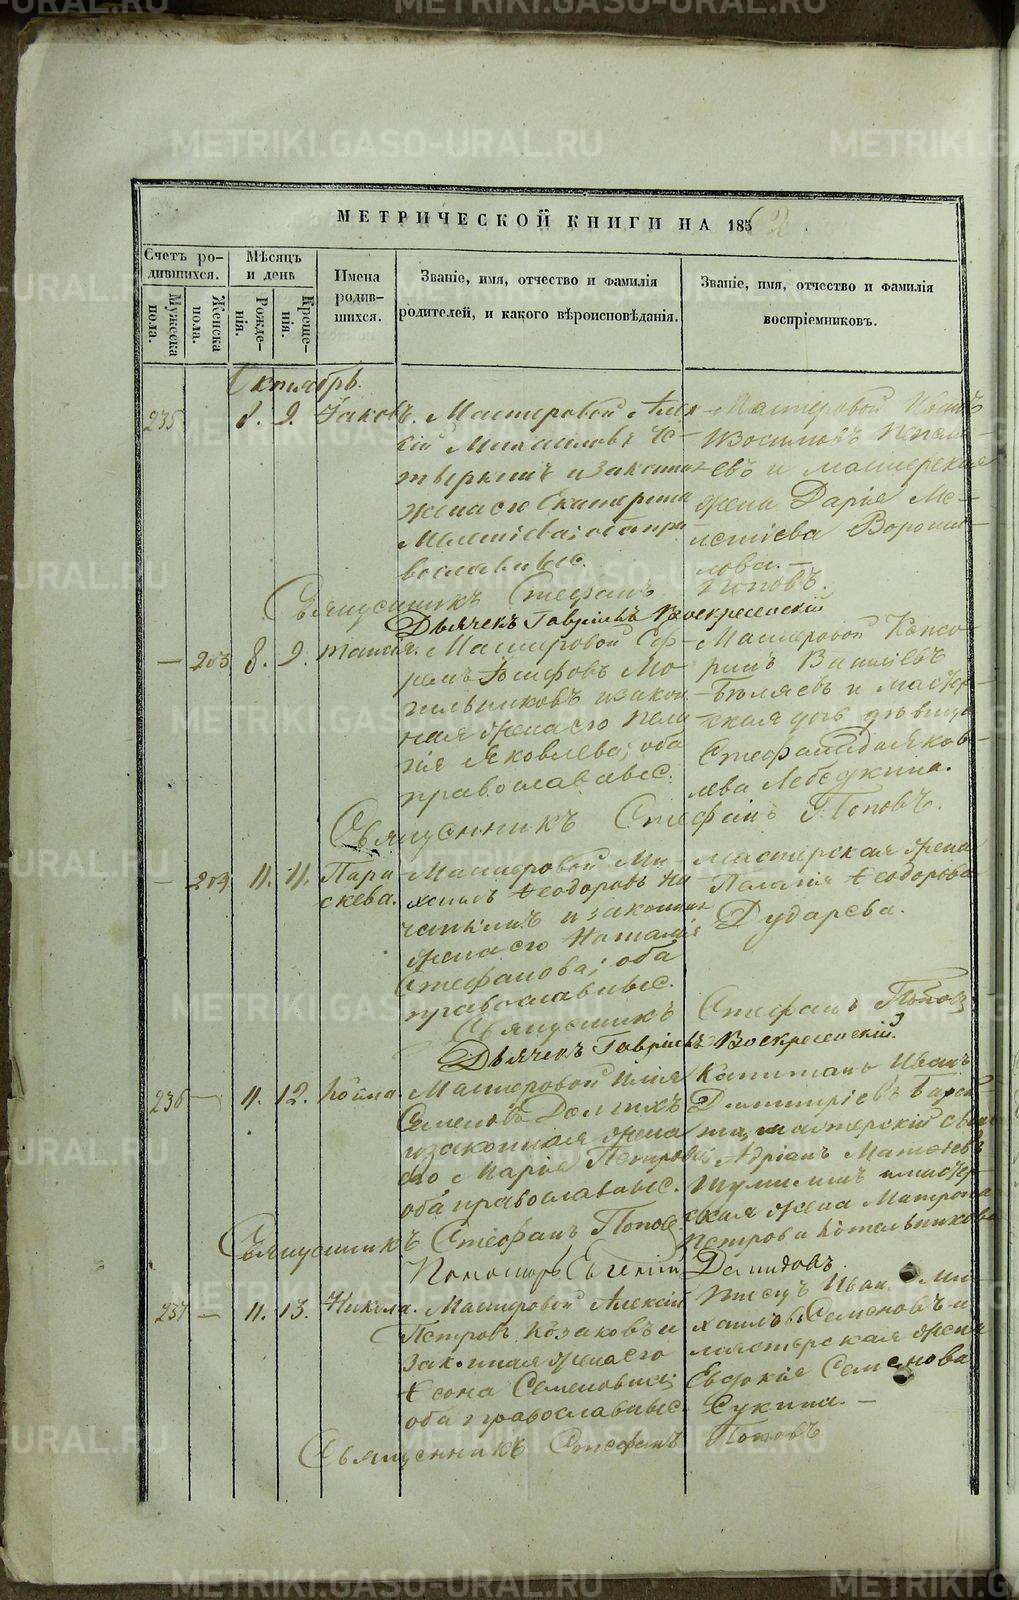 МЕТРИЧЕСКОЙ КНИГИ НА 185
Счетъ ро-
дившихся.
Мужеска
пола.
Женска
пола.
Мѣсяцъ
и день
Рожде-
нія.
Креще-
нія.
Имена
родив-
шихся.
Званіе, имя, отчество и фамилія
родителей, и какого вѣроисповѣданія.
Званіе, имя, отчество и фамилія
воспріемниковъ.
Октябрь.
235
8. 9. Іаковъ.
Мастеровой Алек-
сій Михаиловъ Че-
тыркинъ и законная
жена его Екатерина
оба пра
вославные.
Мастеровой Иванъ
Зосимовъ
евъ и мастерская
жена Дарія Ме-
летіева Воропи-
лова. —
Священникъ Стефанъ Поповъ
Дьячекъ Гавріилъ Воскресенскій
— 203. 8. 9. Таисія.
Мастеровой Еф-
ремъ Іосифовъ Мо-
гильниковъ и закон
ная жена его Пела
гія Яковлева; оба
православные.
Мастеровой
Василіевъ
Бѣляевъ и мастер-
ская дочь дѣвица
Стефанида Яков-
лева Лебедкина.
Священникъ Стефанъ Поповъ.
— 204. 11. 11. Пара
скева.
Мастеровой Ми-
хаилъ Ѳеодоровъ
и законная
жена его Наталія
Стефанова; оба
православные.
Мастерская жена
Пелагія Ѳеодорова
Дударева.
Священникъ Стефанъ Поповъ
Дьячекъ Гавріилъ Воскресенскій.
236 — 11. 12. Ѳома.
Мастеровой Илія
Семеновъ Долгихъ
и законная жена
его Марія Петрова
оба православные.
Капитанъ Иванъ
Димитріевъ
мастерскій сынъ
Адріанъ Матѳеевъ
Шумилинъ и мастер-
ская жена Матрона
Петрова Котельникова
Священникъ Стефанъ Поповъ
Пономарь Евгеній Демидовъ.
237 — 11. 13. Никола.
Мастеровой Алексій
Петровъ Козаковъ и
законная жена его
Ѳеона Семеновна;
оба православные.
Писецъ Иван Ми-
хаиловъ Семеновъ и
мастерская жена
Евдокія Семенова
Сукина. —
Священникъ Стефанъ Поповъ
METRIKI.GASO-URAL.RU